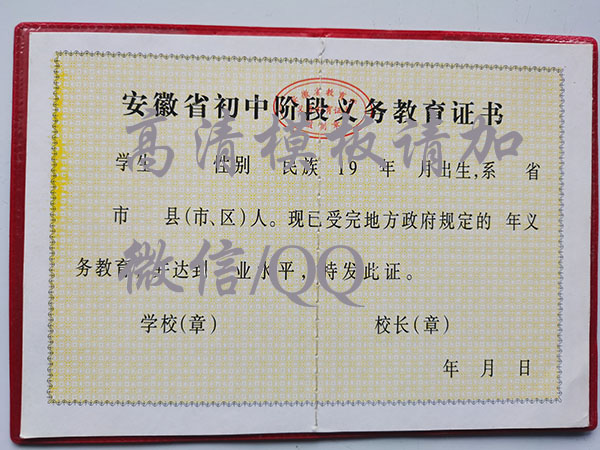 安徽省初中阶段义务教育证书
高清模板请加
学生 性别 民族 19 年 月出生,系 省
市 县(市、区)人。现已受完地方政府规定的 年义
务教育 并达到 业水平,特发此证。
微信/QQ
学校(章) 校长(章)
年 月 日